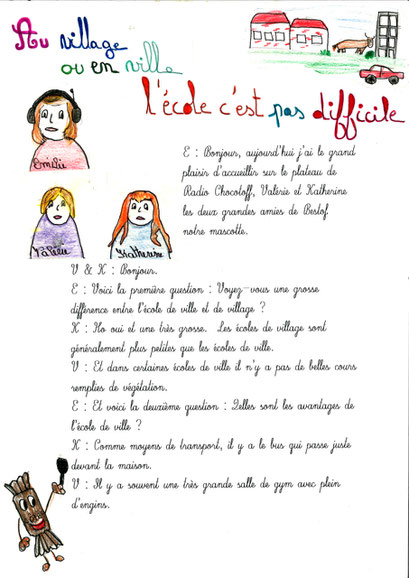 Au village
ou en ville
l'école c'est pas difficile
Emilie
E : Bonjour, aujourd'hui j'ai le grand
plaisir d'accueillir sur le plateau de
Radio Chocotoff, Valérie et Katherine
les deux grandes amies de Bestof
notre mascotte.
Valérie
Katherine
V & K : Bonjour.
E : Voici la première question : Voyez-vous une grosse
différence entre l'école de ville et de village ?
K : Ho oui et une très grosse. Les écoles de village sont
généralement plus petites que les écoles de ville.
V : Et dans certaines écoles de ville il n'y a pas de belles cours
remplies de végétation.
E : Et voici la deuxième question : Quelles sont les avantages de
l'école de ville ?
K : Comme moyens de transport, il y a le bus qui passe juste
devant la maison.
V : Il y a souvent une très grande salle de gym avec plein
d'engins.